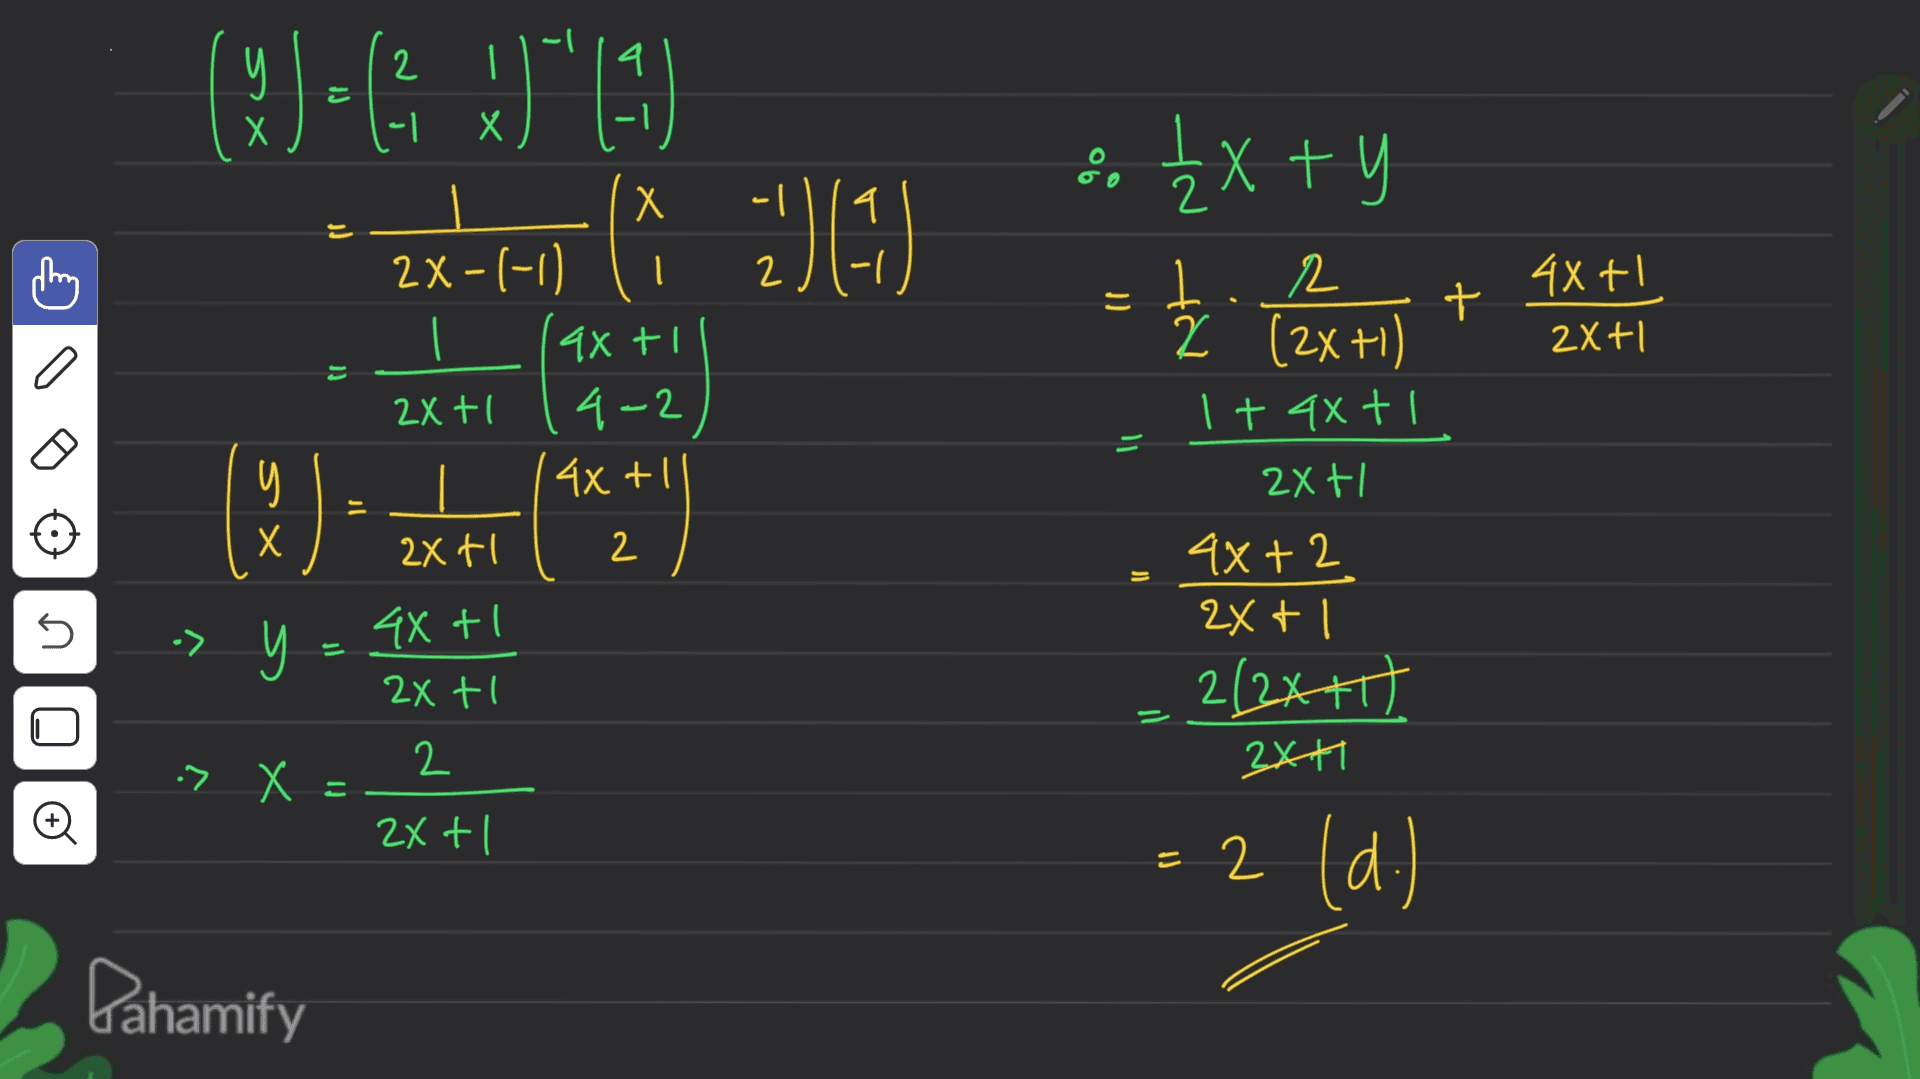 (y x) = (2 1 -1 x)⁻¹ (4 -1)
= 1/(2x-(-1)) (x -1 1 2)(4 -1)
= 1/(2x+1) (4x+1 4-2)
(y x) = 1/(2x+1) (4x+1 2)
-> y = (4x+1)/(2x+1)
-> x = 2/(2x+1)
∴ 1/2 x + y
= 1/2 · 2/(2x+1) + (4x+1)/(2x+1)
= (1+4x+1)/(2x+1)
= (4x+2)/(2x+1)
= 2(2x+1)/(2x+1)
= 2 (d.)
Pahamify